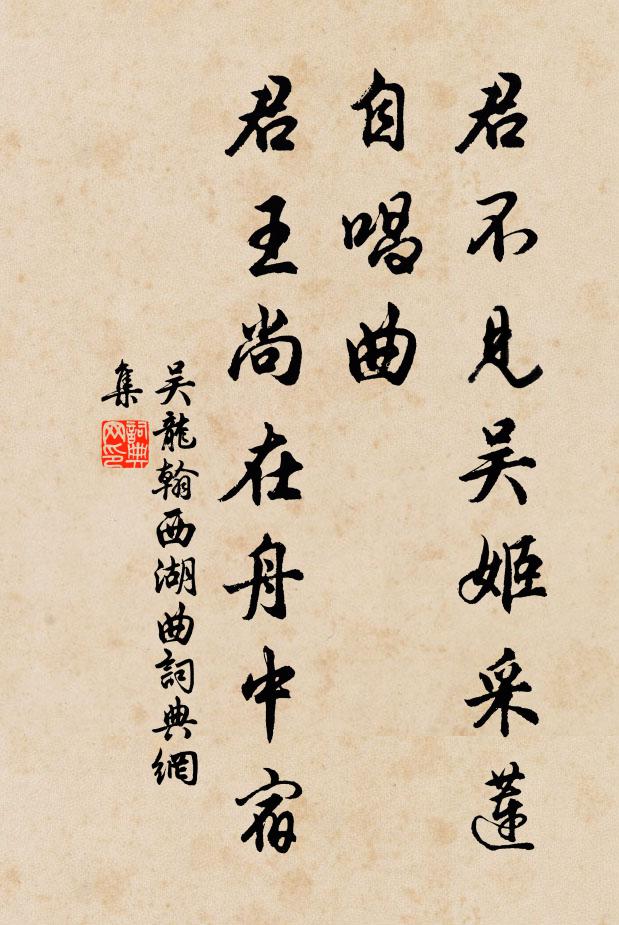 君不见吴姬采蓮
自唱曲
君王尚在舟中宿
吴龍翰西湖曲詞典網
集
詞典
网印